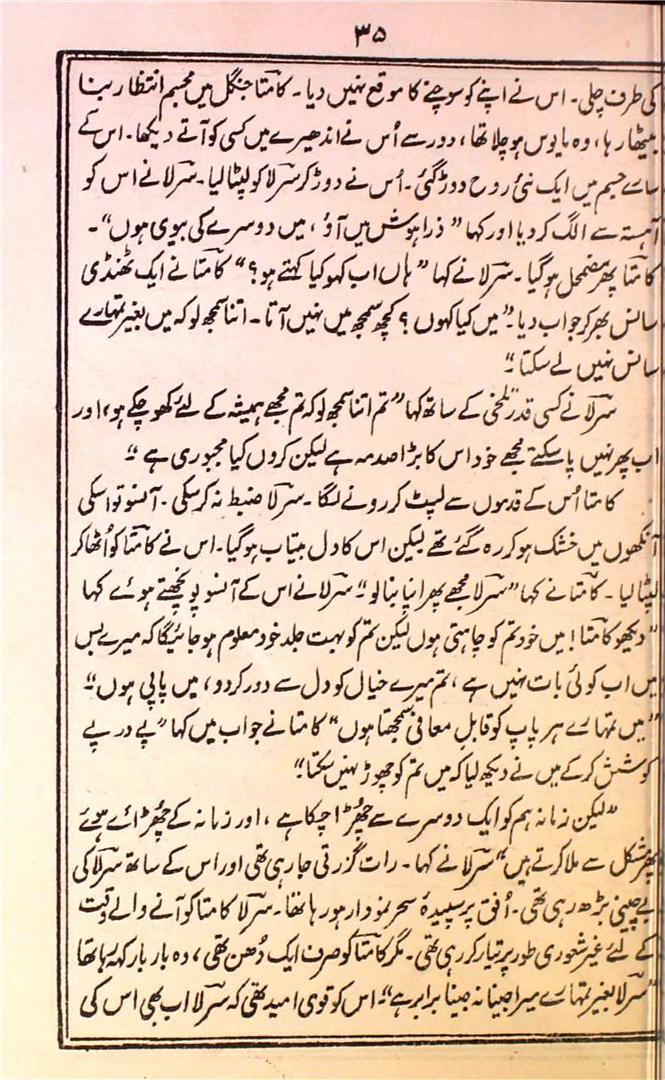 ۳۵
کی طرف چلی۔ اس نے اپنے کو سوچنے کا موقع نہیں دیا۔ کامتا جنگل میں مجسم انتظار بنا
بیٹھا رہا، وہ مایوس ہو چلا تھا، دور سے اُس نے اندھیرے میں کسی کو آتے دیکھا۔ اس کے
سارے جسم میں ایک نئی روح دوڑ گئی۔ اُس نے دوڑ کر سرلا کو لپٹا لیا۔ سرلا نے اس کو
آہستہ سے الگ کر دیا اور کہا ”ذرا ہوش میں آؤ، میں دوسرے کی بیوی ہوں“۔
کامتا پھر مضمحل ہو گیا۔ سرلا نے کہا ”ہاں اب کہو کیا کہتے ہو؟“ کامتا نے ایک ٹھنڈی
سانس بھر کر جواب دیا۔ ”میں کیا کہوں؟ کچھ سمجھ میں نہیں آتا۔ اتنا سمجھ لو کہ میں بغیر تمہارے
سانس نہیں لے سکتا“
سرلا نے کسی قدر تلخی کے ساتھ کہا ”تم اتنا سمجھ لو کہ تم مجھے ہمیشہ کے لئے کھو چکے ہو، اور
اب پھر نہیں پا سکتے مجھے خود اس کا بڑا صدمہ ہے لیکن کروں کیا مجبوری ہے“
کامتا اُس کے قدموں سے لپٹ کر رونے لگا۔ سرلا ضبط نہ کر سکی۔ آنسو تو اسکی
آنکھوں میں خشک ہو کر رہ گئے تھے لیکن اس کا دل بیتاب ہو گیا۔ اس نے کامتا کو اُٹھا کر
لپٹا لیا۔ کامتا نے کہا ”سرلا مجھے پھر اپنا بنا لو“ سرلا نے اس کے آنسو پونچھتے ہوئے کہا
”دیکھو کامتا! میں خود تم کو چاہتی ہوں لیکن تم کو بہت جلد خود معلوم ہو جائیگا کہ میرے بس
میں اب کوئی بات نہیں ہے، تم میرے خیال کو دل سے دور کر دو، میں پاپی ہوں“
”میں تمہارے ہر پاپ کو قابلِ معافی سمجھتا ہوں“ کامتا نے جواب میں کہا ”پے در پے
کوشش کر کے میں نے دیکھ لیا کہ میں تم کو چھوڑ نہیں سکتا“
”لیکن زمانہ ہم کو ایک دوسرے سے چھڑا چکا ہے، اور زمانہ کے چھڑائے ہوئے
پھر مشکل سے ملا کرتے ہیں“ سرلا نے کہا۔ رات گزرتی جا رہی تھی اور اس کے ساتھ سرلا کی
بے چینی بڑھ رہی تھی۔ اُفق پر سپیدۂ سحر نمودار ہو رہا تھا۔ سرلا کامتا کو آنے والے وقت
کے لئے غیر شعوری طور پر تیار کر رہی تھی۔ مگر کامتا کو صرف ایک دُھن تھی، وہ بار بار کہہ رہا تھا
”سرلا بغیر تمہارے میرا جینا نہ جینا برابر ہے“۔ اس کو قوی امید تھی کہ سرلا اب بھی اس کی